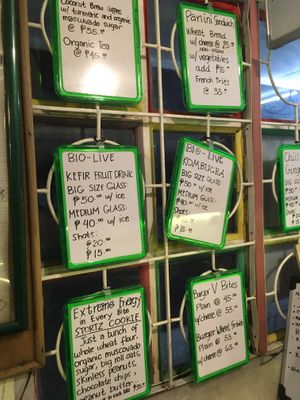 Coconut Brew Coffee
w/ turmeric and organic
muscovado sugar
@ ₱35.00
Organic Tea
@ ₱45.00
Panini Sandwich
Wheat Bread
w/ cheese @ 25
w/ vegetables
add ₱15.00
French Fries
@ 35.00
BIO-LIVE
KEFIR FRUIT DRINK
BIG SIZE GLASS:
₱50.00 w/ ice
MEDIUM GLASS:
₱40.00 w/ ice
Shots:
₱20.00
₱15.00
BIO-LIVE
KOMBUCHA
BIG SIZE GLASS:
₱50.00 w/ ice
MEDIUM GLASS:
₱40.00 w/ ice
Shots:
₱15.00
Extreme Energy
in Every Bite
STORTZ COOKIE
Just a bunch of
whole wheat flour,
organic muscovado
sugar, big roll oats,
skinless peanuts,
chocolate chips,
peanut butter
Burger V Bites
Plain @ 45.00
w/ cheese @ 55.00
Burger Wheat
Plain @ 55.00
w/ cheese @ 65.00